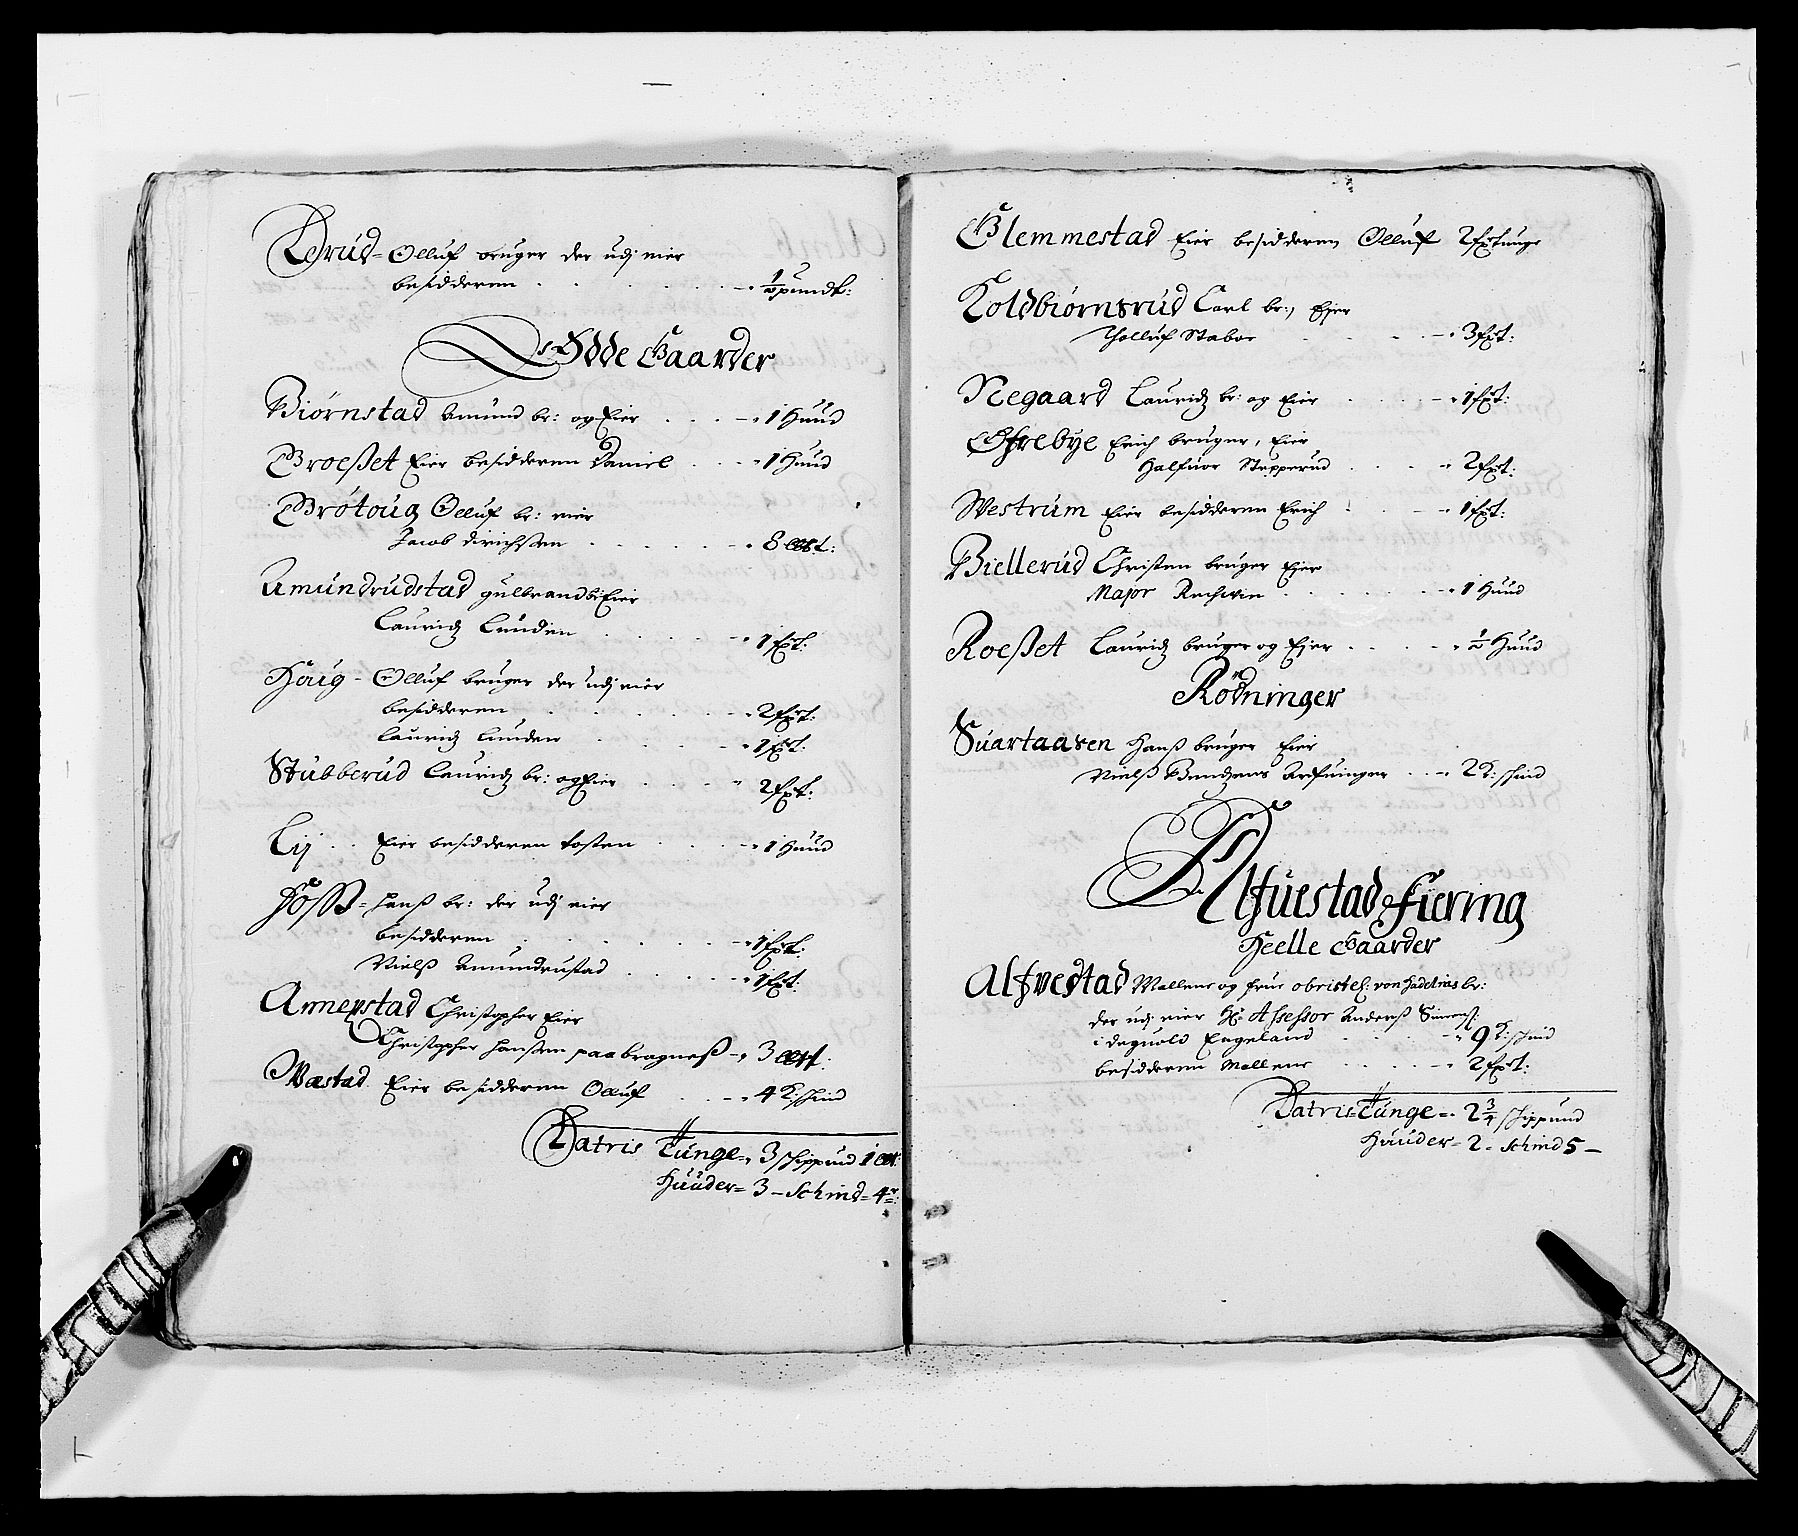 Drud- Olluf bruger der udj eier
besidderen . . . . . ½ pundt:
Ødde Gaarder
Biørnstad Amund br: og Eier . . . 1 Huud
Broeßet Eier besidderen Daniel . . . 1 Huud
Brótoug Olluf br: eier
Jacob dirichssen . . . . 8
Amundrudstad gulbrand br: Eier
Lauridz Lunden . . . . 1 fxt:
Houg - Olluf bruger der udj eier
besidderen . . . . 2 fxt:
Lauridz Lunden . . . . 1 fxt:
Stubberud Lauridz br: og Eier . . . 2 fxt:
Lij . . Eier besidderen tosten . . . 1 Huud
Hans br: der udj eier
besidderen . . . . 1 fxt:
Nielß Amundrustad . . . . 1 fxt:
Annexstad Christopher Eier
Christopher Hanssen paa bragneß - 3
Wæstad Eier besidderen Olluf . . . 4 K: schind
Latris Tunge - 3 schippund 1
Huuder = 3 - Schind = 4
Glemmestad Eier besidderen Olluf 2 fxrtunge
Koldbiørnsrud Carl br:, Ejer
Tholluf Stabor . . . . 3 fxt:
Negaard Lauridz br: og Eier . . . . 1 fxt:
Øfrebye Erich bruger, Eier
Halfuor Stepperud . . . . 2 fxt:
Westrum Eier besidderen Erich . . . . 1 fxt:
Biellerud Christen bruger Ejer
Major . . . . 1 Huud
Roeßet Lauridz bruger og Ejer . . . . ½ Huud
Rødninger
Suartaasen Hanß bruger Eier
Nielß Bendzens Arfuinger . . . 2 K: schind
Alfuestad Fiering
Heelle Gaarder
Alfvestad Mallene og frue obristel: von Hadelns br:
der udj eier Hr: Assessor Anderß Simens:
i Engeland . . . 9 K: schind
besidderen Mallene . . . . 2 fxt:
Latris Tunge = 2 ¾ schippund
Huuder = 2 - Schind 5 -